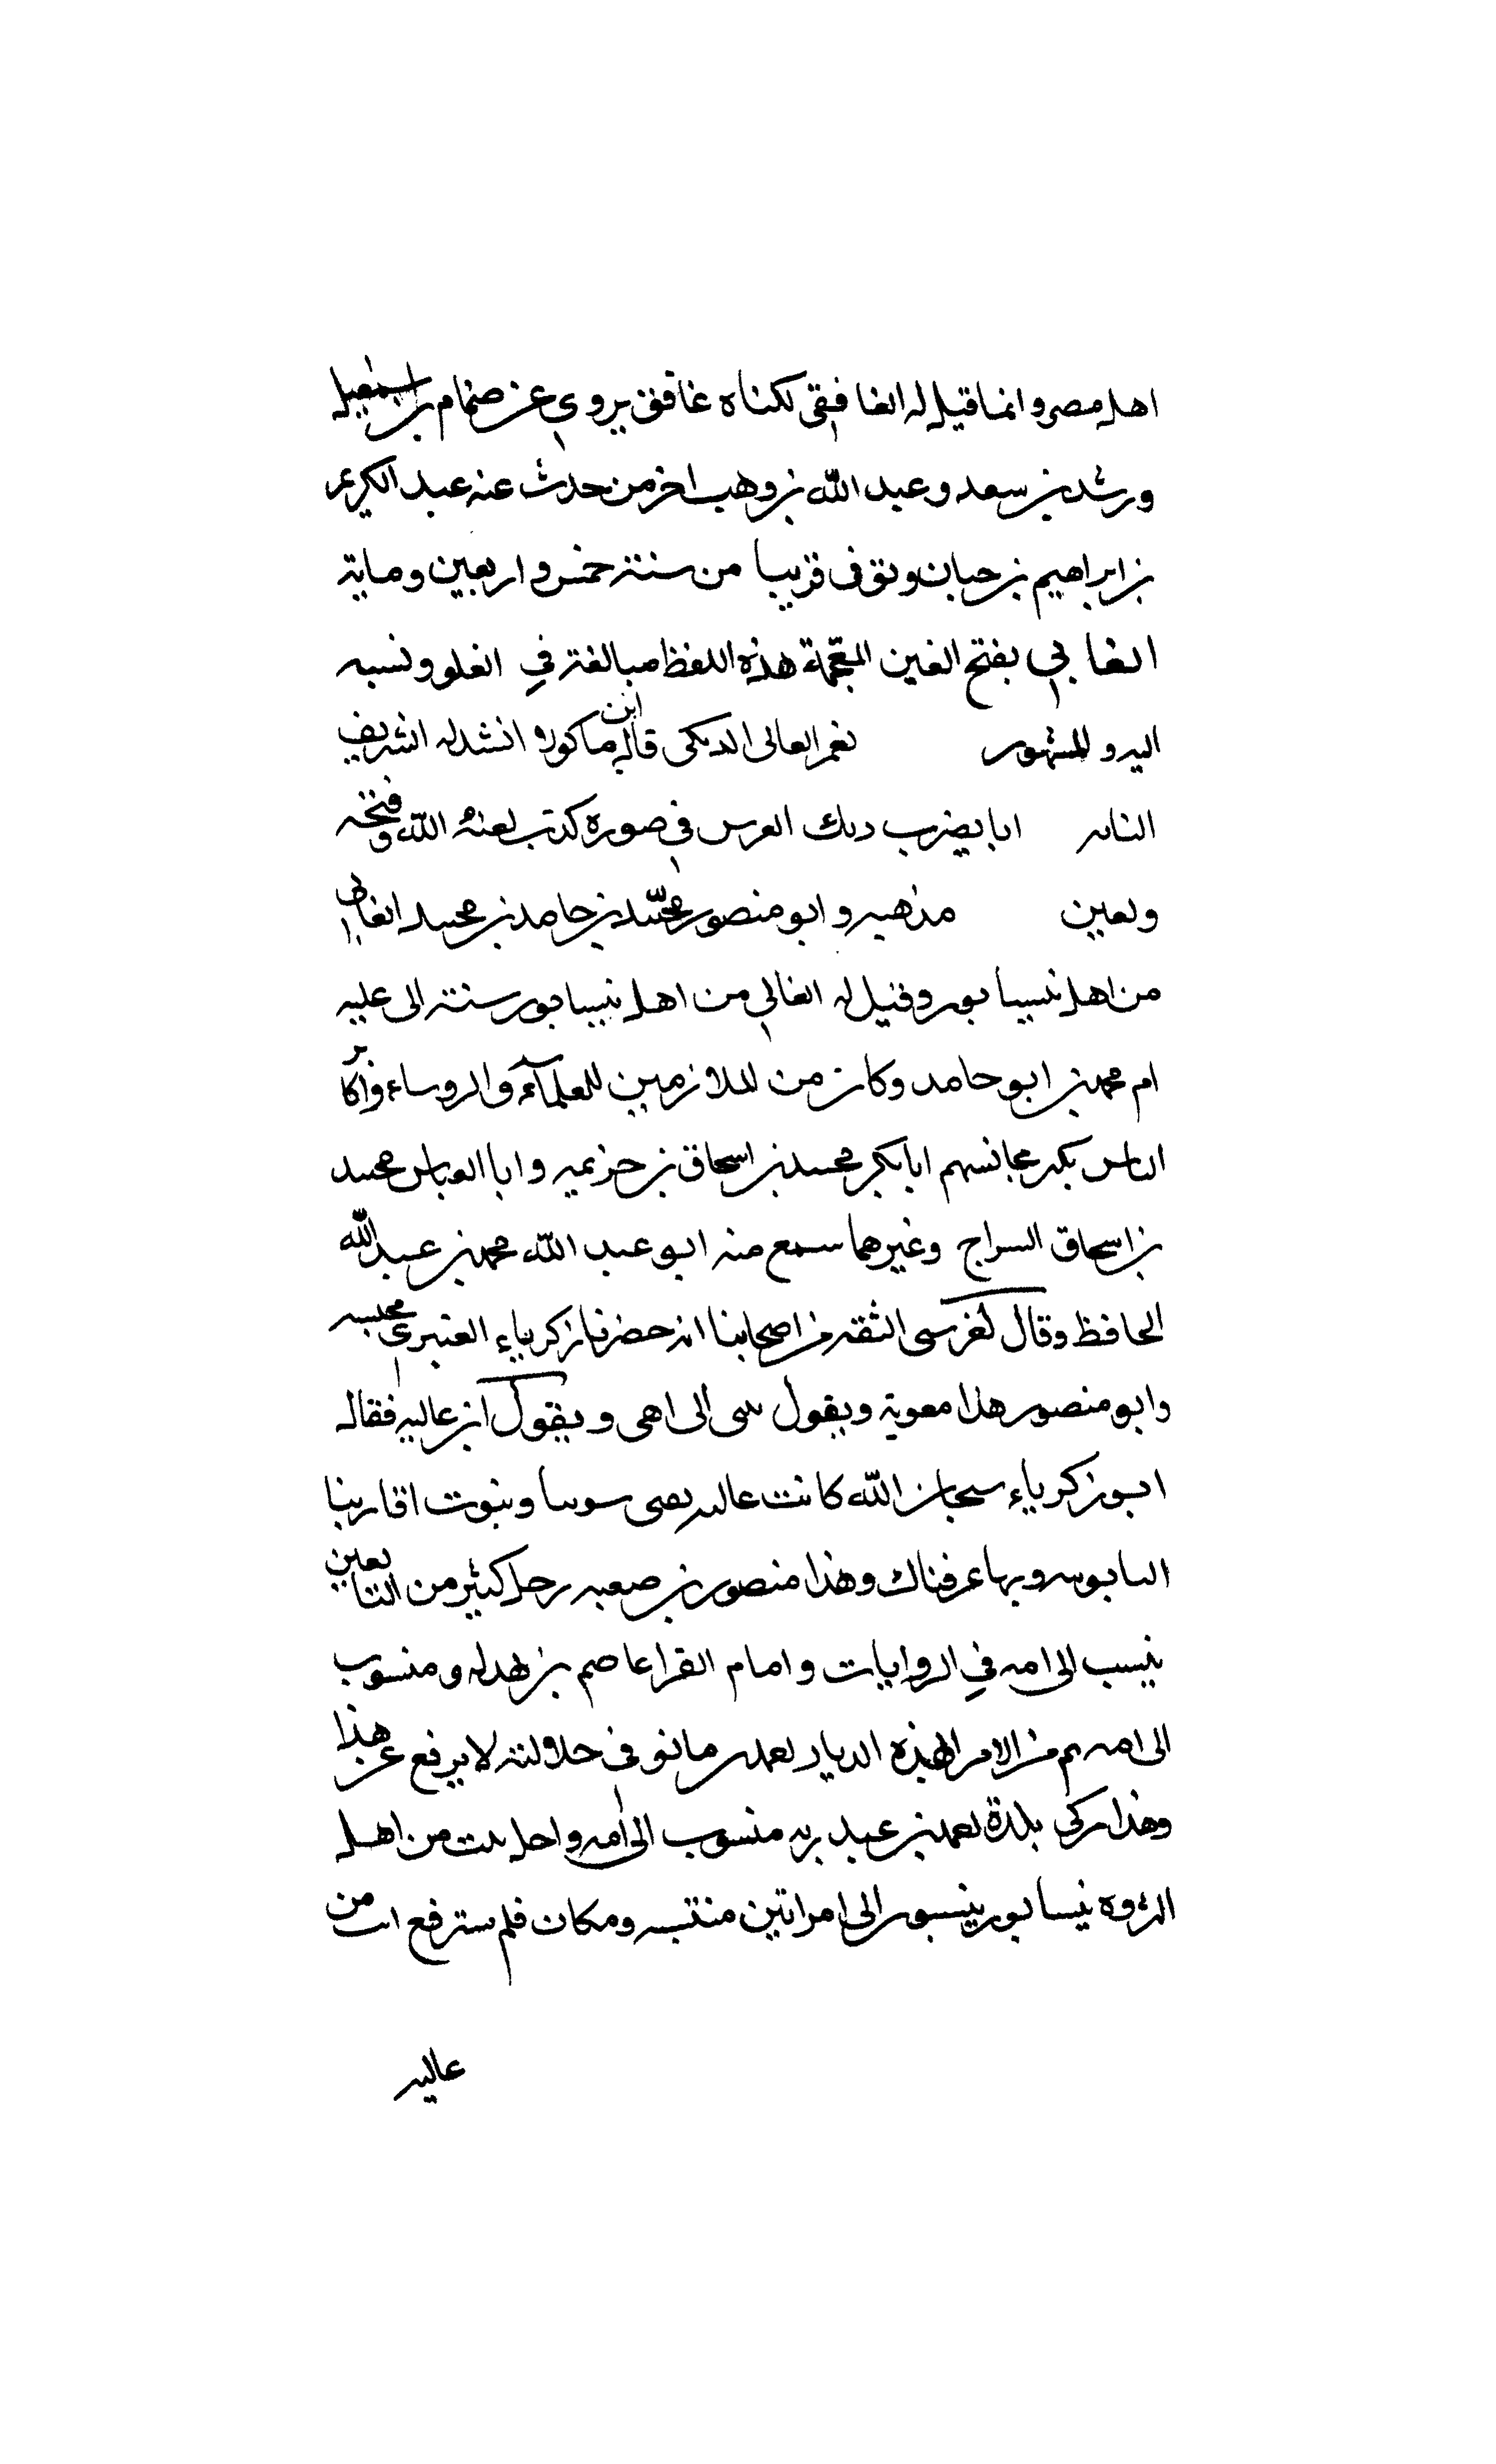 اهل مصر وانما قيل له الغافقى لكناه غافق يروي عن ضمام بن اسمعيل
ورشد بن سعد وعبد الله بن وهب اخر من حدث عنه عبد الكريم
بن ابراهيم بن حبان وتوفى قريبا من سنة خمس واربعين ومايه
الغالي بفتح الغين المعجمة هذه اللفظ مبالغة في الغلو ونسبه
اليه والمشهور نعم الغالى الديكى قاله ابن ماكولا انشد له الشريف
النابه ابا يضرب ديك العرس في صورة كذب لعنه الله وقبحه
ولعين مذهبه وابو منصور محمد بن حامد بن محمد الغالي
من اهل نيسابور وقيل له الغالي من اهل نيسابور سنته الى عليه
ام محمد بن ابو حامد وكان من الملازمين للعلماء والروساء واكابر
الناس بكر مجانسهم ابا بكر محمد بن اسحاق بن خزيمه وابا العباس محمد
بن اسحاق السراج وغيرهما سمع منه ابو عبد الله محمد بن عبد الله
الحافظ وقال الثقه من اصحابنا انه حضر زكرياء العنبري مجلسه
وابو منصور هذا معوية ويقول الى اهى ويقول ابن عاليه فقال
ابو زكرياء سبحان الله كانت عاليه وبنوت اقاربنا
وبها عرفناك وهذا منصور بن صعبه رجل كثير من التابعين
ينسب الى امه في الروايات وامام القرا عاصم بن بهدله ومنسوب
الى امه ثم من الامر الهذه الديار فى جلالته لا يرفع عن هذا
وهذا مركى بلدة محمد بن عبد ربه منسوب الى امه واحل بيت من اهل
الثروه نيسابور ينسبور الى امراتين منتبه ومكان فلم سترفع انت من
عاليه